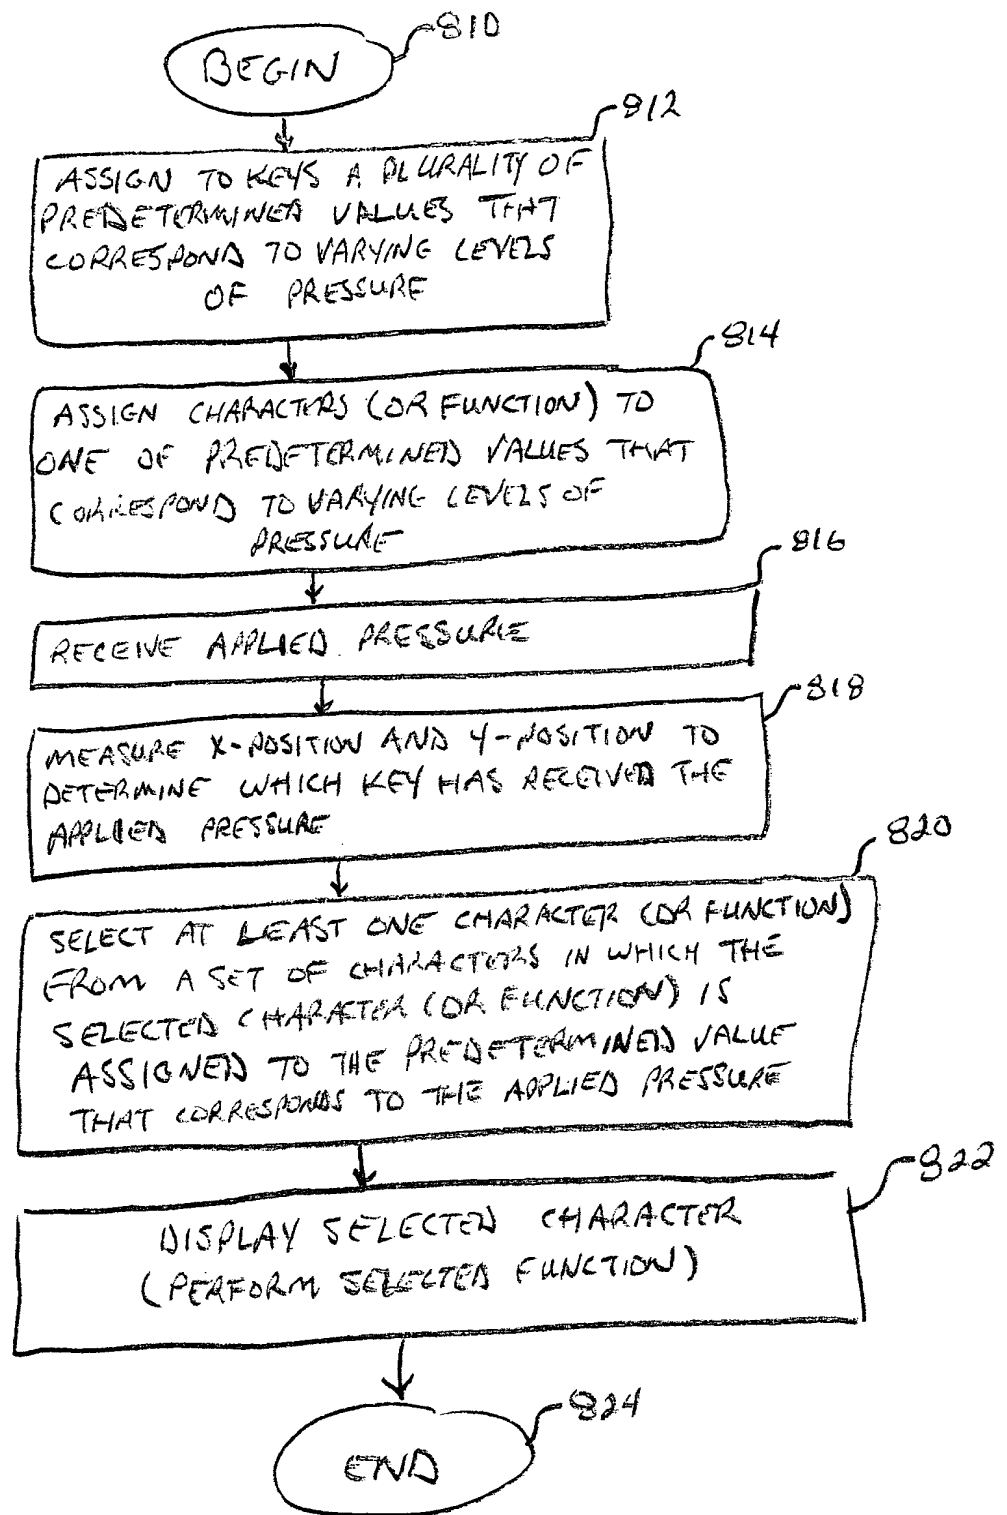 810
BEGIN
812
ASSIGN TO KEYS A PLURALITY OF
PREDETERMINED VALUES THAT
CORRESPOND TO VARYING LEVELS
OF PRESSURE
814
ASSIGN CHARACTERS (OR FUNCTION) TO
ONE OF PREDETERMINED VALUES THAT
CORRESPOND TO VARYING LEVELS OF
PRESSURE
816
RECEIVE APPLIED PRESSURE
818
MEASURE X-POSITION AND Y-POSITION TO
DETERMINE WHICH KEY HAS RECEIVED THE
APPLIED PRESSURE
820
SELECT AT LEAST ONE CHARACTER (OR FUNCTION)
FROM A SET OF CHARACTERS IN WHICH THE
SELECTED CHARACTER (OR FUNCTION) IS
ASSIGNED TO THE PREDETERMINED VALUE
THAT CORRESPONDS TO THE APPLIED PRESSURE
822
DISPLAY SELECTED CHARACTER
(PERFORM SELECTED FUNCTION)
824
END